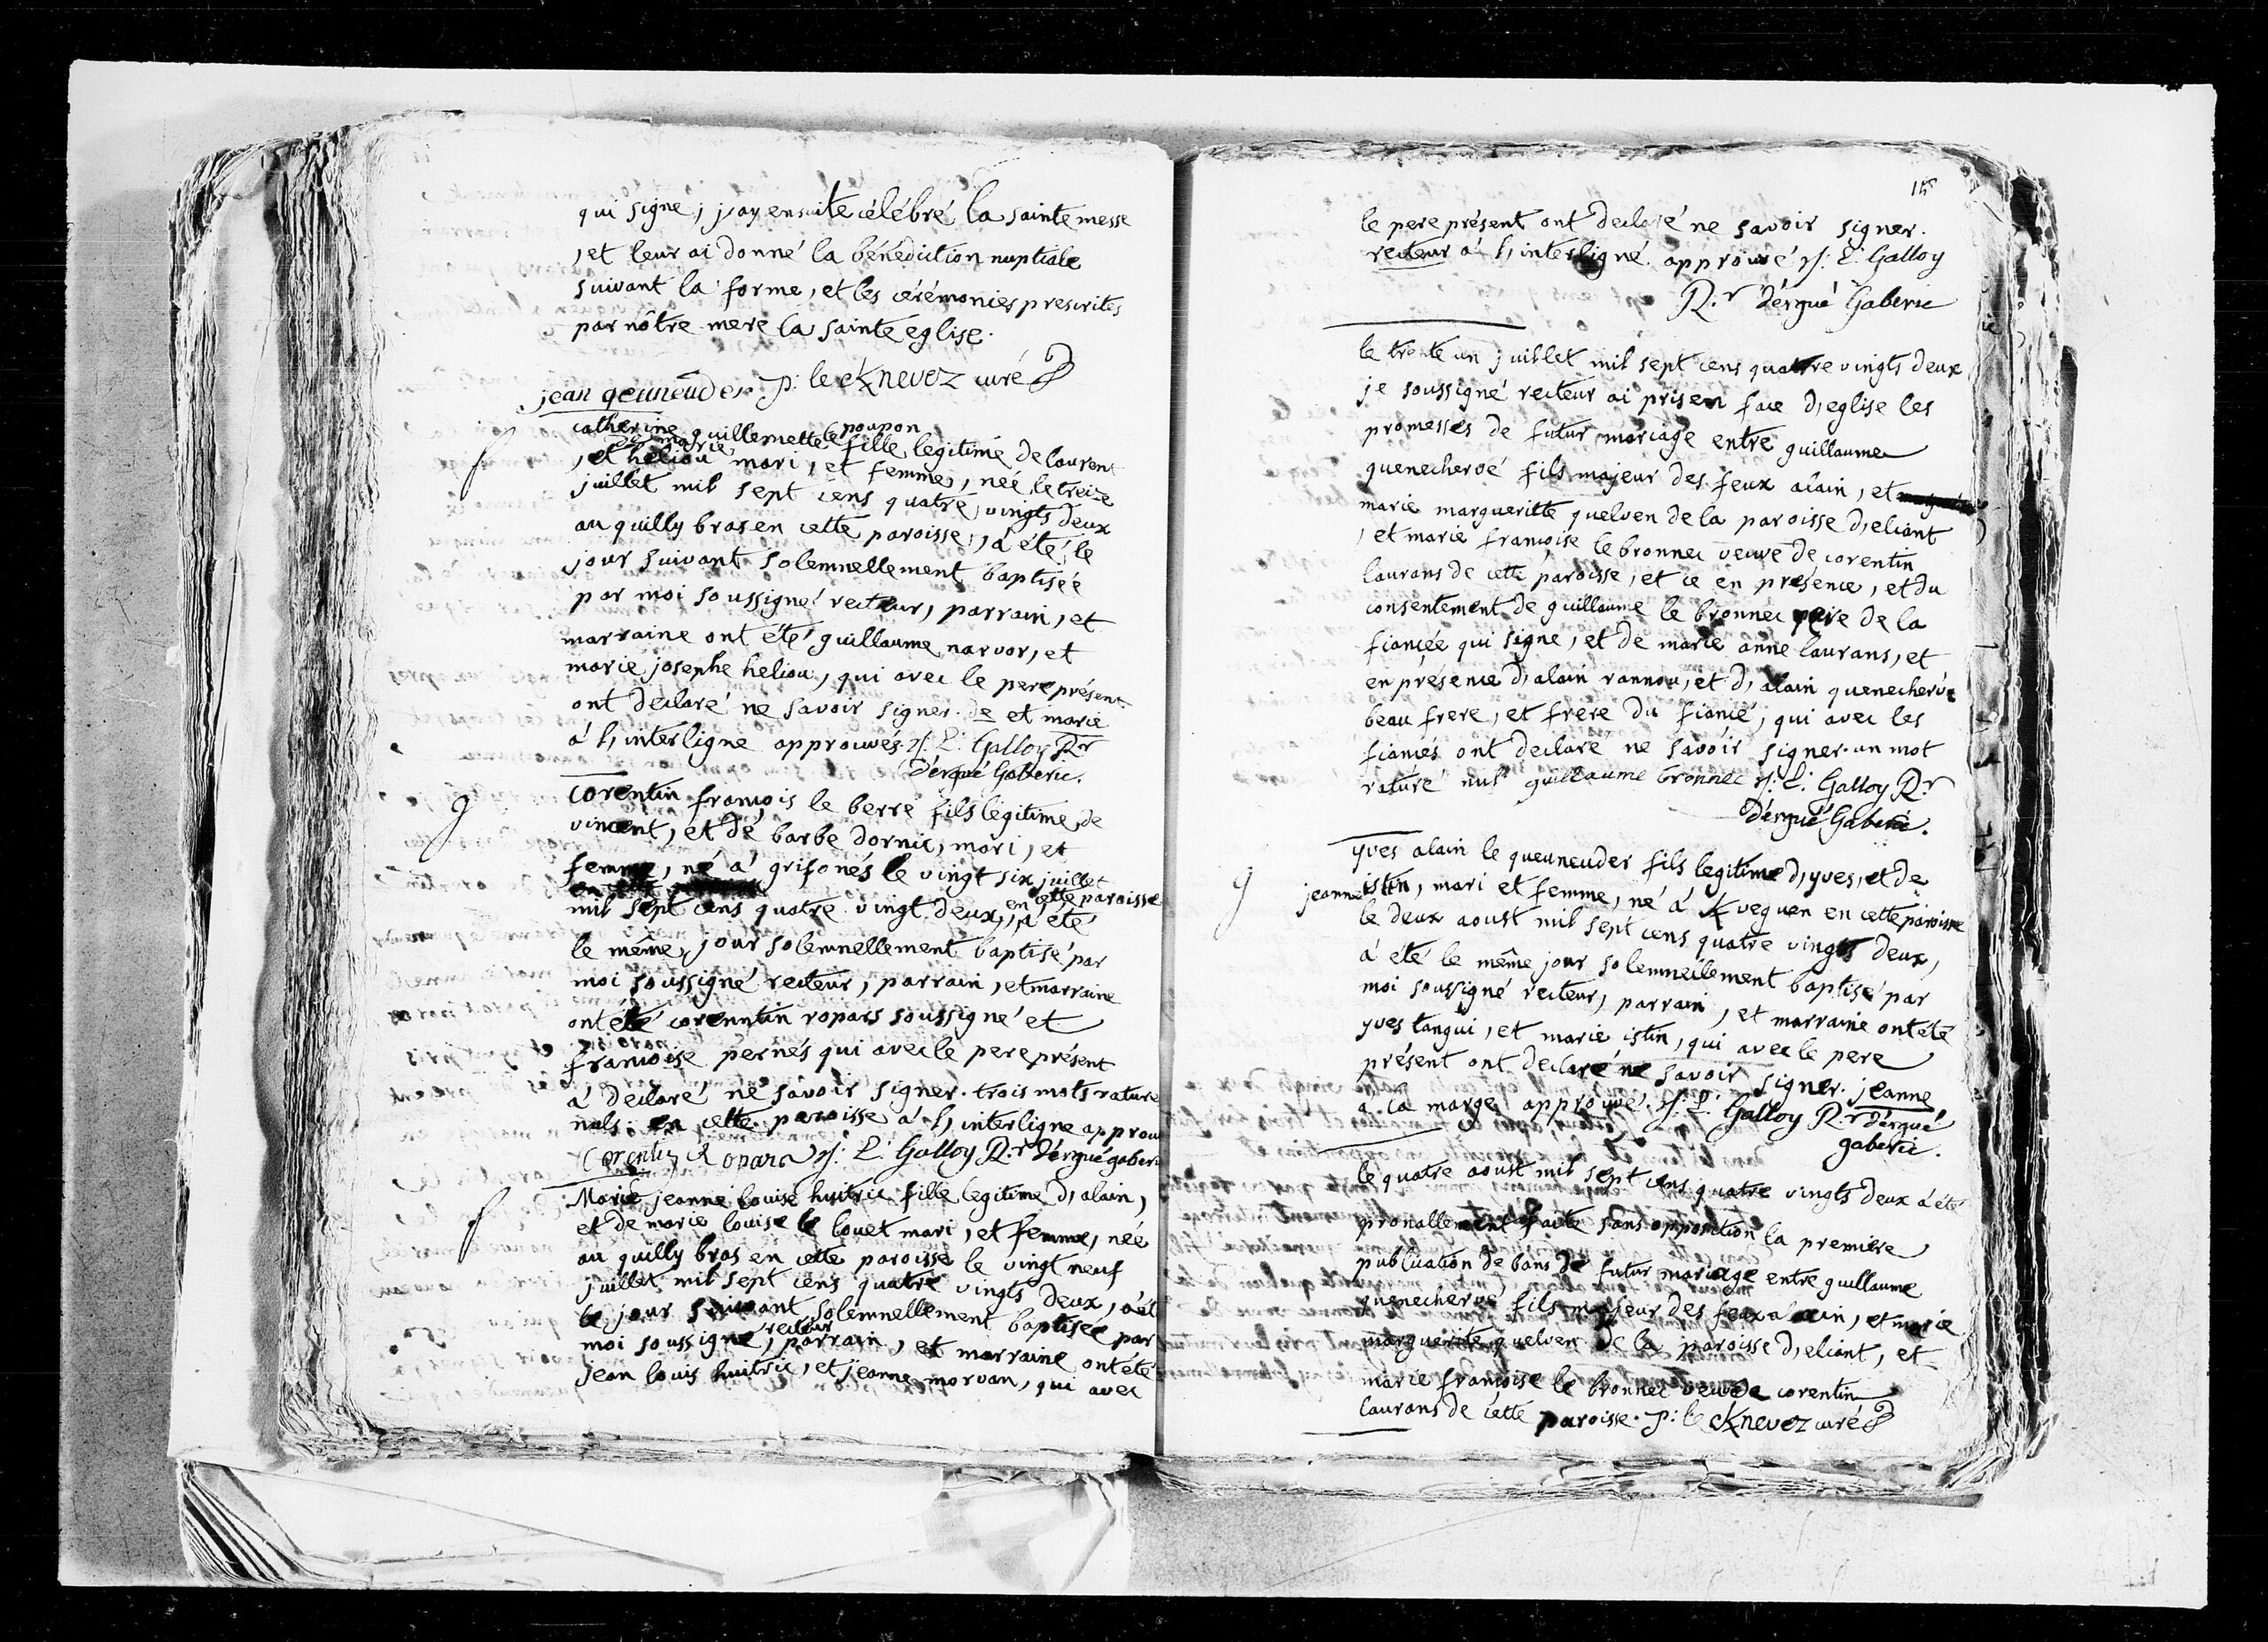 qui signe, j,ay ensuite célébré la sainte messe
, et leur ai donné la bénédiction nuptiale
suivant la forme, et les cérémonies prescrites
par nôtre mere la sainte eglise.
jean qeuneuder p: le Knevez curé
catherine guillemette le poupon
fille legitime de laurent
de marie
, et heliou mari, et femme, néé le treize
juillet mil sept cens quatre vingts deux
au quilly bras en cette paroisse, à été le
jour suivant solemnellement baptiséé
par moi soussigné recteur, parrain, et
marraine ont été guillaume narvor, et
marie josephe heliou, qui avec le pere présent
ont declaré ne savoir signer. de et marie
à l, interligne approuvés. L: Galloy Rr
Dérgué Gaberic.
g
Corentin françois le berre fils légitime de
vincent, et de barbe dornic, mari, et
femme, né à grifonés le vingt six juillet
en cette paroisse
mil sept cens quatre vingt deux, à été
le même jour solemnellement baptisé par
moi soussigné recteur, parrain, et marraine
ont été corenntin ropars soussigné et
francoise pernés qui avec le pere présent
à declaré ne savoir signer. trois mots raturé
nuls. en cette paroisse à l, interligne approu
Corentin Ropars L: Galloy R.r Dérgué gaberi
f
Marie jeanne louise huitric fille legitime d, alain,
et de marie louise le louet mari, et femme, néé
au quilly bras en cette paroisse le vingt neuf
juillet mil sept cens quatre vingts deux, à ét
le jour suivant solemnellement baptiséé par
recteur
moi soussigné, parrain, et marraine ont été
jean louis huitric, et jeanne morvan, qui avec
le pere présent ont declaré ne savoir signer.
recteur à l, interligne approuvé L: Galloy
R.r Dérgué Gaberic
le trente un juillet mil sept cens quatre vingts deux
je soussigné recteur ai pris en face d, eglise les
promesses de futur mariage entre guillaume
quenechervé fils majeur des feux alain, et
marie margueritte quelven de la paroisse d, eliant
, et marie françoise le bronnec veuve de corentin
laurans de cette paroisse, et ce en présence, et du
consentement de guillaume le bronnec pere de la
fiancée qui signe, et de marie anne laurans, et
en présence d, alain rannou, et d, alain quenechervé
beau frere, et frere du fiancé, qui avec les
fiancés ont declaré ne savoir signer. un mot
raturé nul guillaume bronnec L: Galloy R.r
Dérgué Gaberic.
g
yves alain le queuneuder fils legitime d, yves, et de
jeanne istin, mari et femme, né à Kveguen en cette paroisse
le deux aoust mil sept cens quatre vingts deux,
à été le même jour solemnellement baptisé par
moi soussigné recteur, parrain, et marraine ont été
yves tangui, et marie istin, qui avec le pere
présent ont declaré ne savoir signer. jeanne
à la marge approuvé. L: Galloy R.r Dérgué
gaberic.
le quatre aoust mil sept cens quatre vingts deux à été
pronallement faite sans opposition la premiere
publication de bans de futur mariage entre guillaume
quenechervé fils majeur des feux alain, et marie
marguerite quelven de la paroisse d, eliant, et
marie françoise le bronnec veuve de corentin
laurans de cette paroisse. p: le Knevez curé